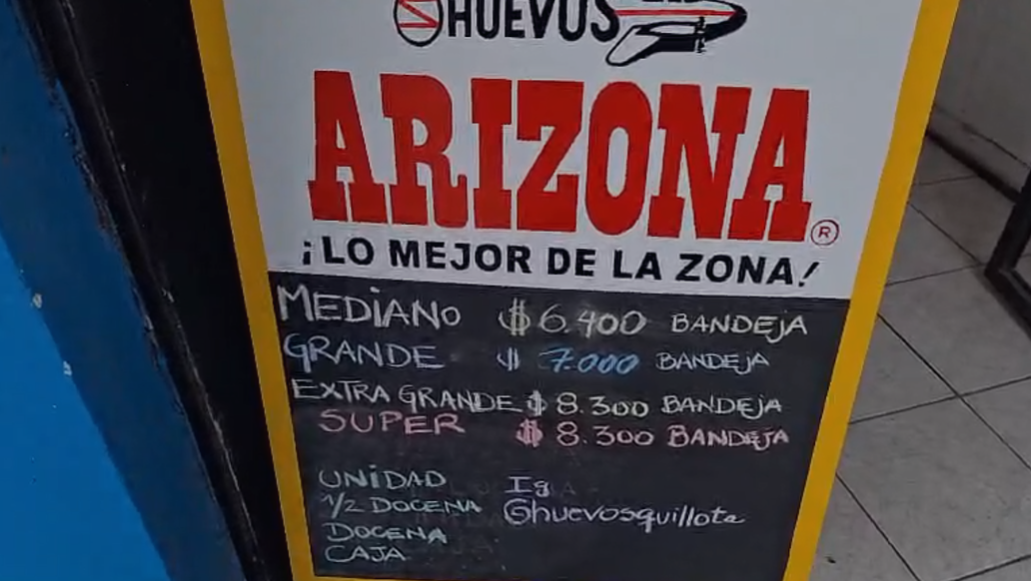 HUEVOS
ARIZONA ®
¡LO MEJOR DE LA ZONA!
MEDIANO $ 6.400 BANDEJA
GRANDE $ 7.000 BANDEJA
EXTRA GRANDE $ 8.300 BANDEJA
SUPER $ 8.300 BANDEJA
UNIDAD Ig
1/2 DOCENA @huevosquillota
DOCENA
CAJA